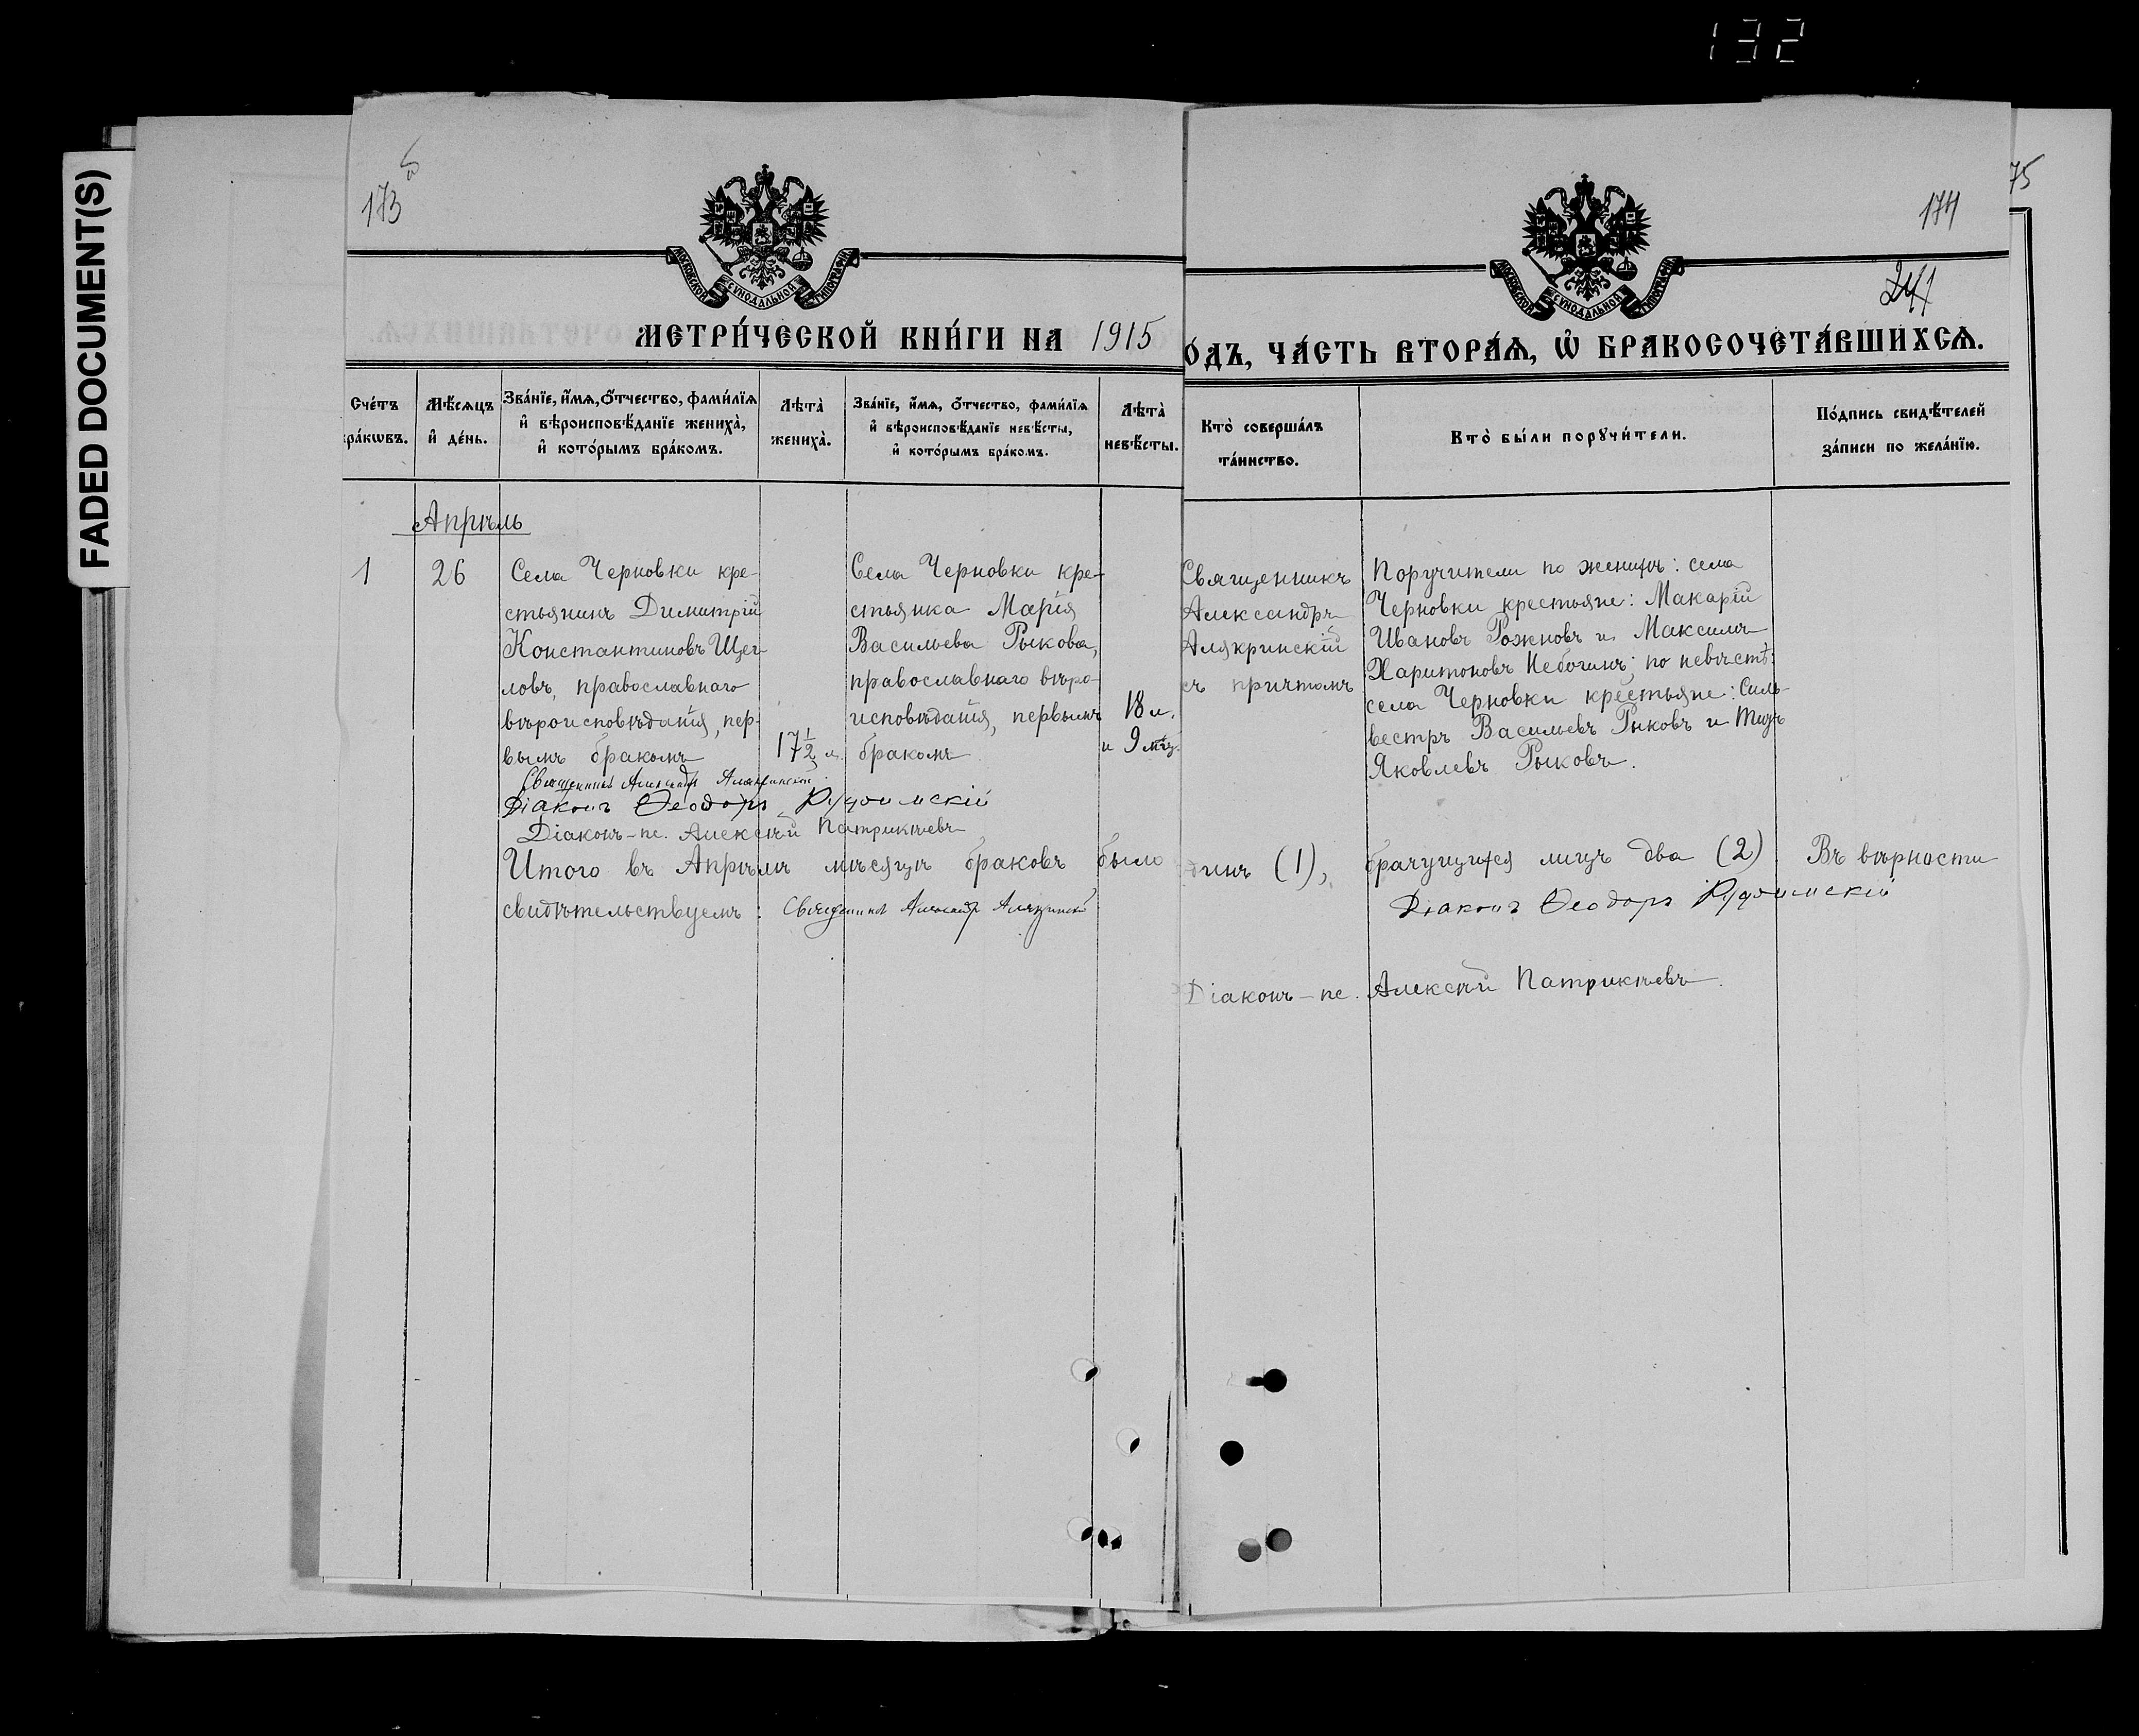 132
FADED DOCUMENT(S)
173
174
75
МОСКОВСКОЙ СѴНОДАЛЬНОЙ ТИПОГРАФІИ
МОСКОВСКОЙ СѴНОДАЛЬНОЙ ТИПОГРАФІИ
МЕТРИ́ЧЕСКОЙ КНИ́ГИ НА 1915
ОДЪ, ЧА́СТЬ ВТОРА́Ѧ, Ѡ҆ БРАКОСОЧЕТА́ВШИХСѦ.
Сче́тъ
ра́кѡвъ.
Мѣ́сѧцъ
и҆ де́нь.
Зва́нїе, и҆́мѧ, ѻ҆́тчество, фами́лїѧ
и҆ вѣроисповѣ́данїе жениха̀,
и҆ кото́рымъ бра́комъ.
Лѣта̀
жениха̀.
Зва́нїе, и҆́мѧ, ѻ҆́тчество, фами́лїѧ
и҆ вѣроисповѣ́данїе невѣ́сты,
и҆ кото́рымъ бра́комъ.
Лѣта̀
невѣ́сты.
Кто̀ соверша́лъ
та́инство.
Кто̀ бы́ли порꙋчи́тели.
По́дпись свидѣ́телей
за́писи по жела́нїю.
Апрѣль
1
26
Села Черновки кре-
стьянинъ Димитрій
Константиновъ Щег-
ловъ, православнаго
вѣроисповѣданія, пер-
вымъ бракомъ
17½ л.
Села Черновки кре-
стьянка Марія
Васильева Рыкова,
православнаго вѣро-
исповѣданія, первымъ
бракомъ
18 л.
и 9 мѣц.
Священникъ
Александръ
Алякринскій
съ причтомъ
Поручители по женихѣ: села
Черновки крестьяне: Макарій
Ивановъ Рожновъ и Максимъ
Харитоновъ Небогинъ; по невѣстѣ:
села Черновки крестьяне: Силь-
вестръ Васильевъ Рыковъ и Титъ
Яковлевъ Рыковъ.
Священникъ Александръ Алякринскій
Діаконъ Ѳеодоръ
Діаконъ-пс. Алексѣй Патрикѣевъ
Итого въ Апрѣлѣ мѣсяцѣ браковъ было динъ (1), брачущихся лицъ два (2). Въ вѣрности
свидѣтельствуемъ: Священникъ Александръ Алякринскій
Діаконъ Ѳеодоръ
Діаконъ-пс. Алексѣй Патрикѣевъ.